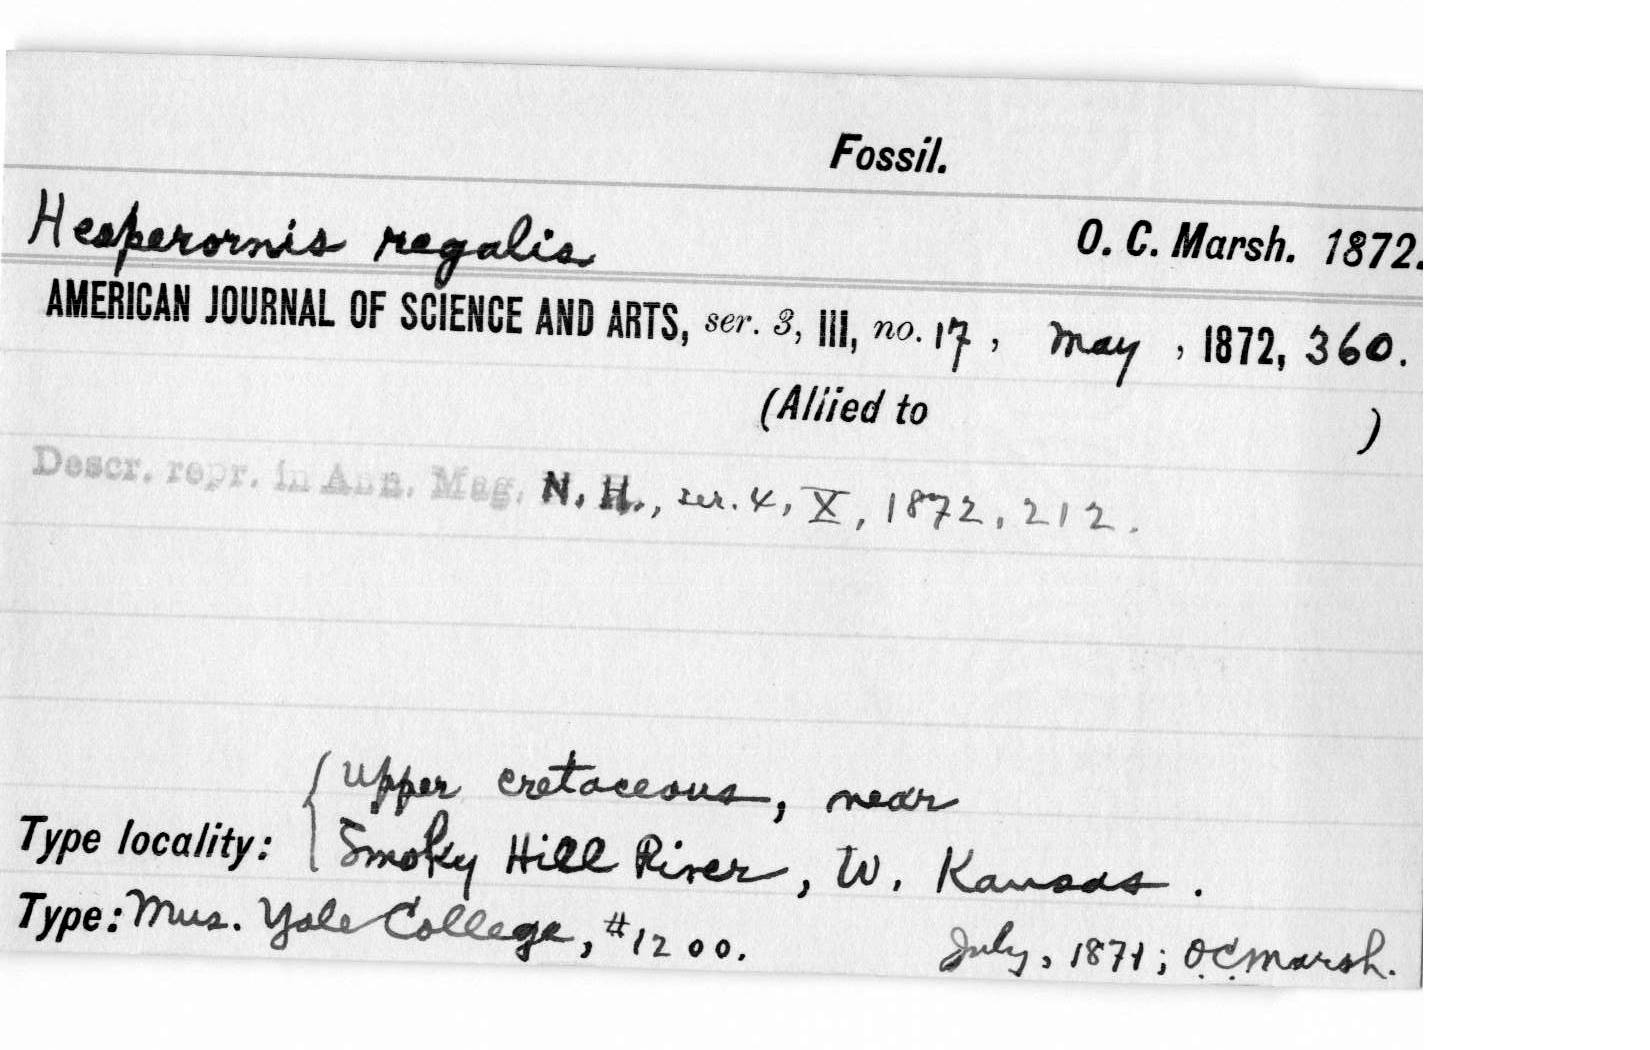 Fossil.
Hesperornis regalis O. C. Marsh. 1872.
AMERICAN JOURNAL OF SCIENCE AND ARTS, ser. 3, III, no. 17, May, 1872, 360.
(Allied to )
Descr. repr. in Ann. Mag. N. H., ser. 4, X, 1872, 212.
Upper cretaceous, near
Type locality: Smoky Hill River, W. Kansas.
Type: Mus. Yale College, #1200. July, 1871; O.C. Marsh.